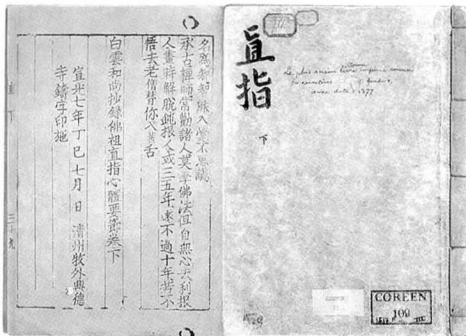 直指
下
Le plus ancien livre imprimé connu
en caractères fondus,
avec date = 1377
COREEN
109
不思議
古禪師常勸諸人莫學佛法但自無心去利根
人晝時解脫鈍根人或三五年遠不過十年若不
悟去老僧替你入舌
白雲和尚抄錄佛祖直指心體要節卷下
宣光七年丁巳七月 日 清州牧外興德
寺鑄字印施